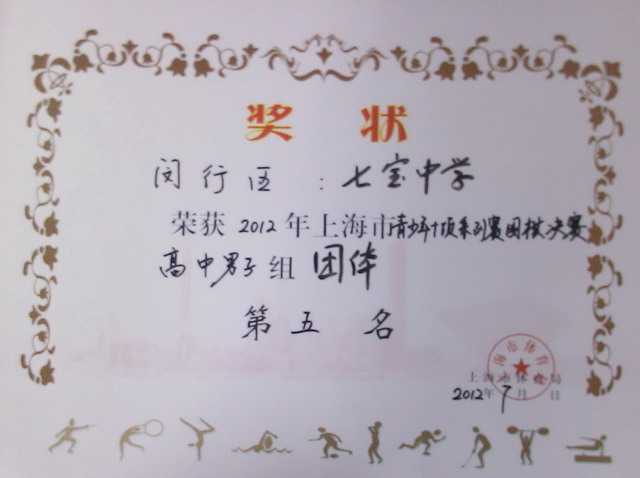 奖状
闵行区：七宝中学
荣获2012年上海市青少年十项系列赛围棋决赛
高中男子组团体
第五名
上海市体育局
2012年7月 日